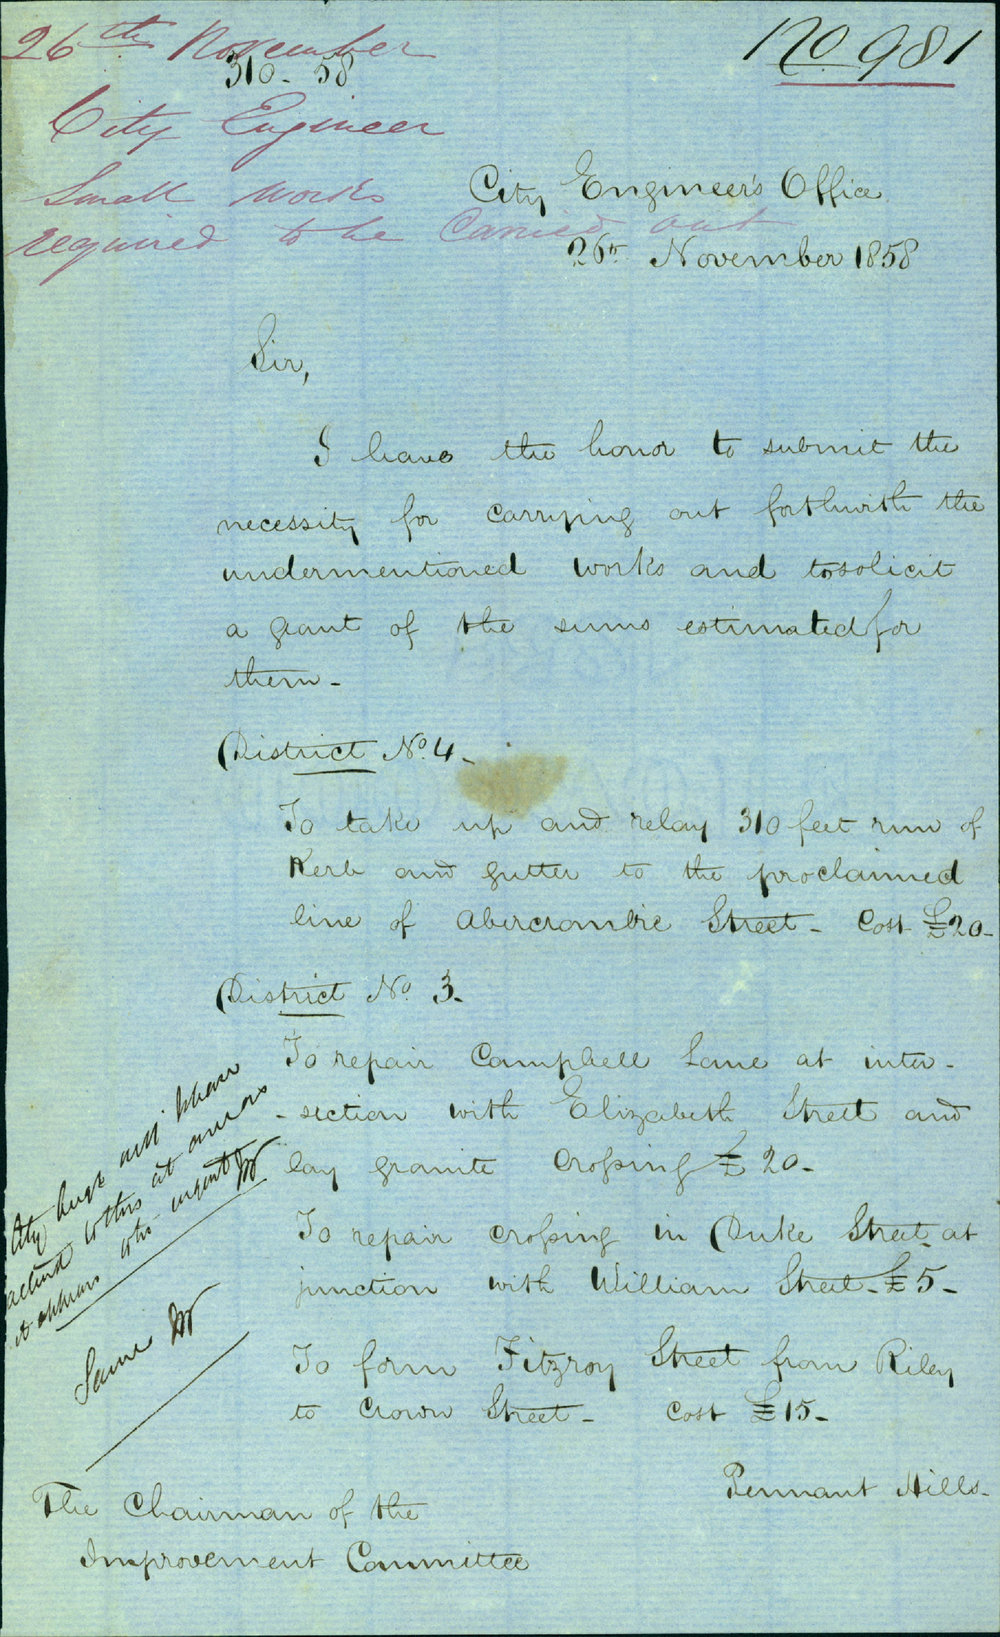 26th November
No 981
310-58
City Engineer
Small works
required to be Carried out
City Engineer's Office
26th November 1858
Sir,
I have the honor to submit the
necessity for carrying out forthwith the
undermentioned works and to solicit
a grant of the sums estimated for
them-
District No. 4-
To take up and relay 310 feet run of
Kerb and gutter to the proclaimed
line of Abercrombie Street- Cost £20-
District No. 3-
To repair Campbell Lane at inter-
-section with Elizabeth Street and
lay granite Crossing £20-
To repair crossing in Duke Street at
junction with William Street-£5-
To form Fitzroy Street from Riley
to Crown Street- Cost £15-
Pennant Hills-
City
at once
it appears urgent
Same
The Chairman of the
Improvement Committee